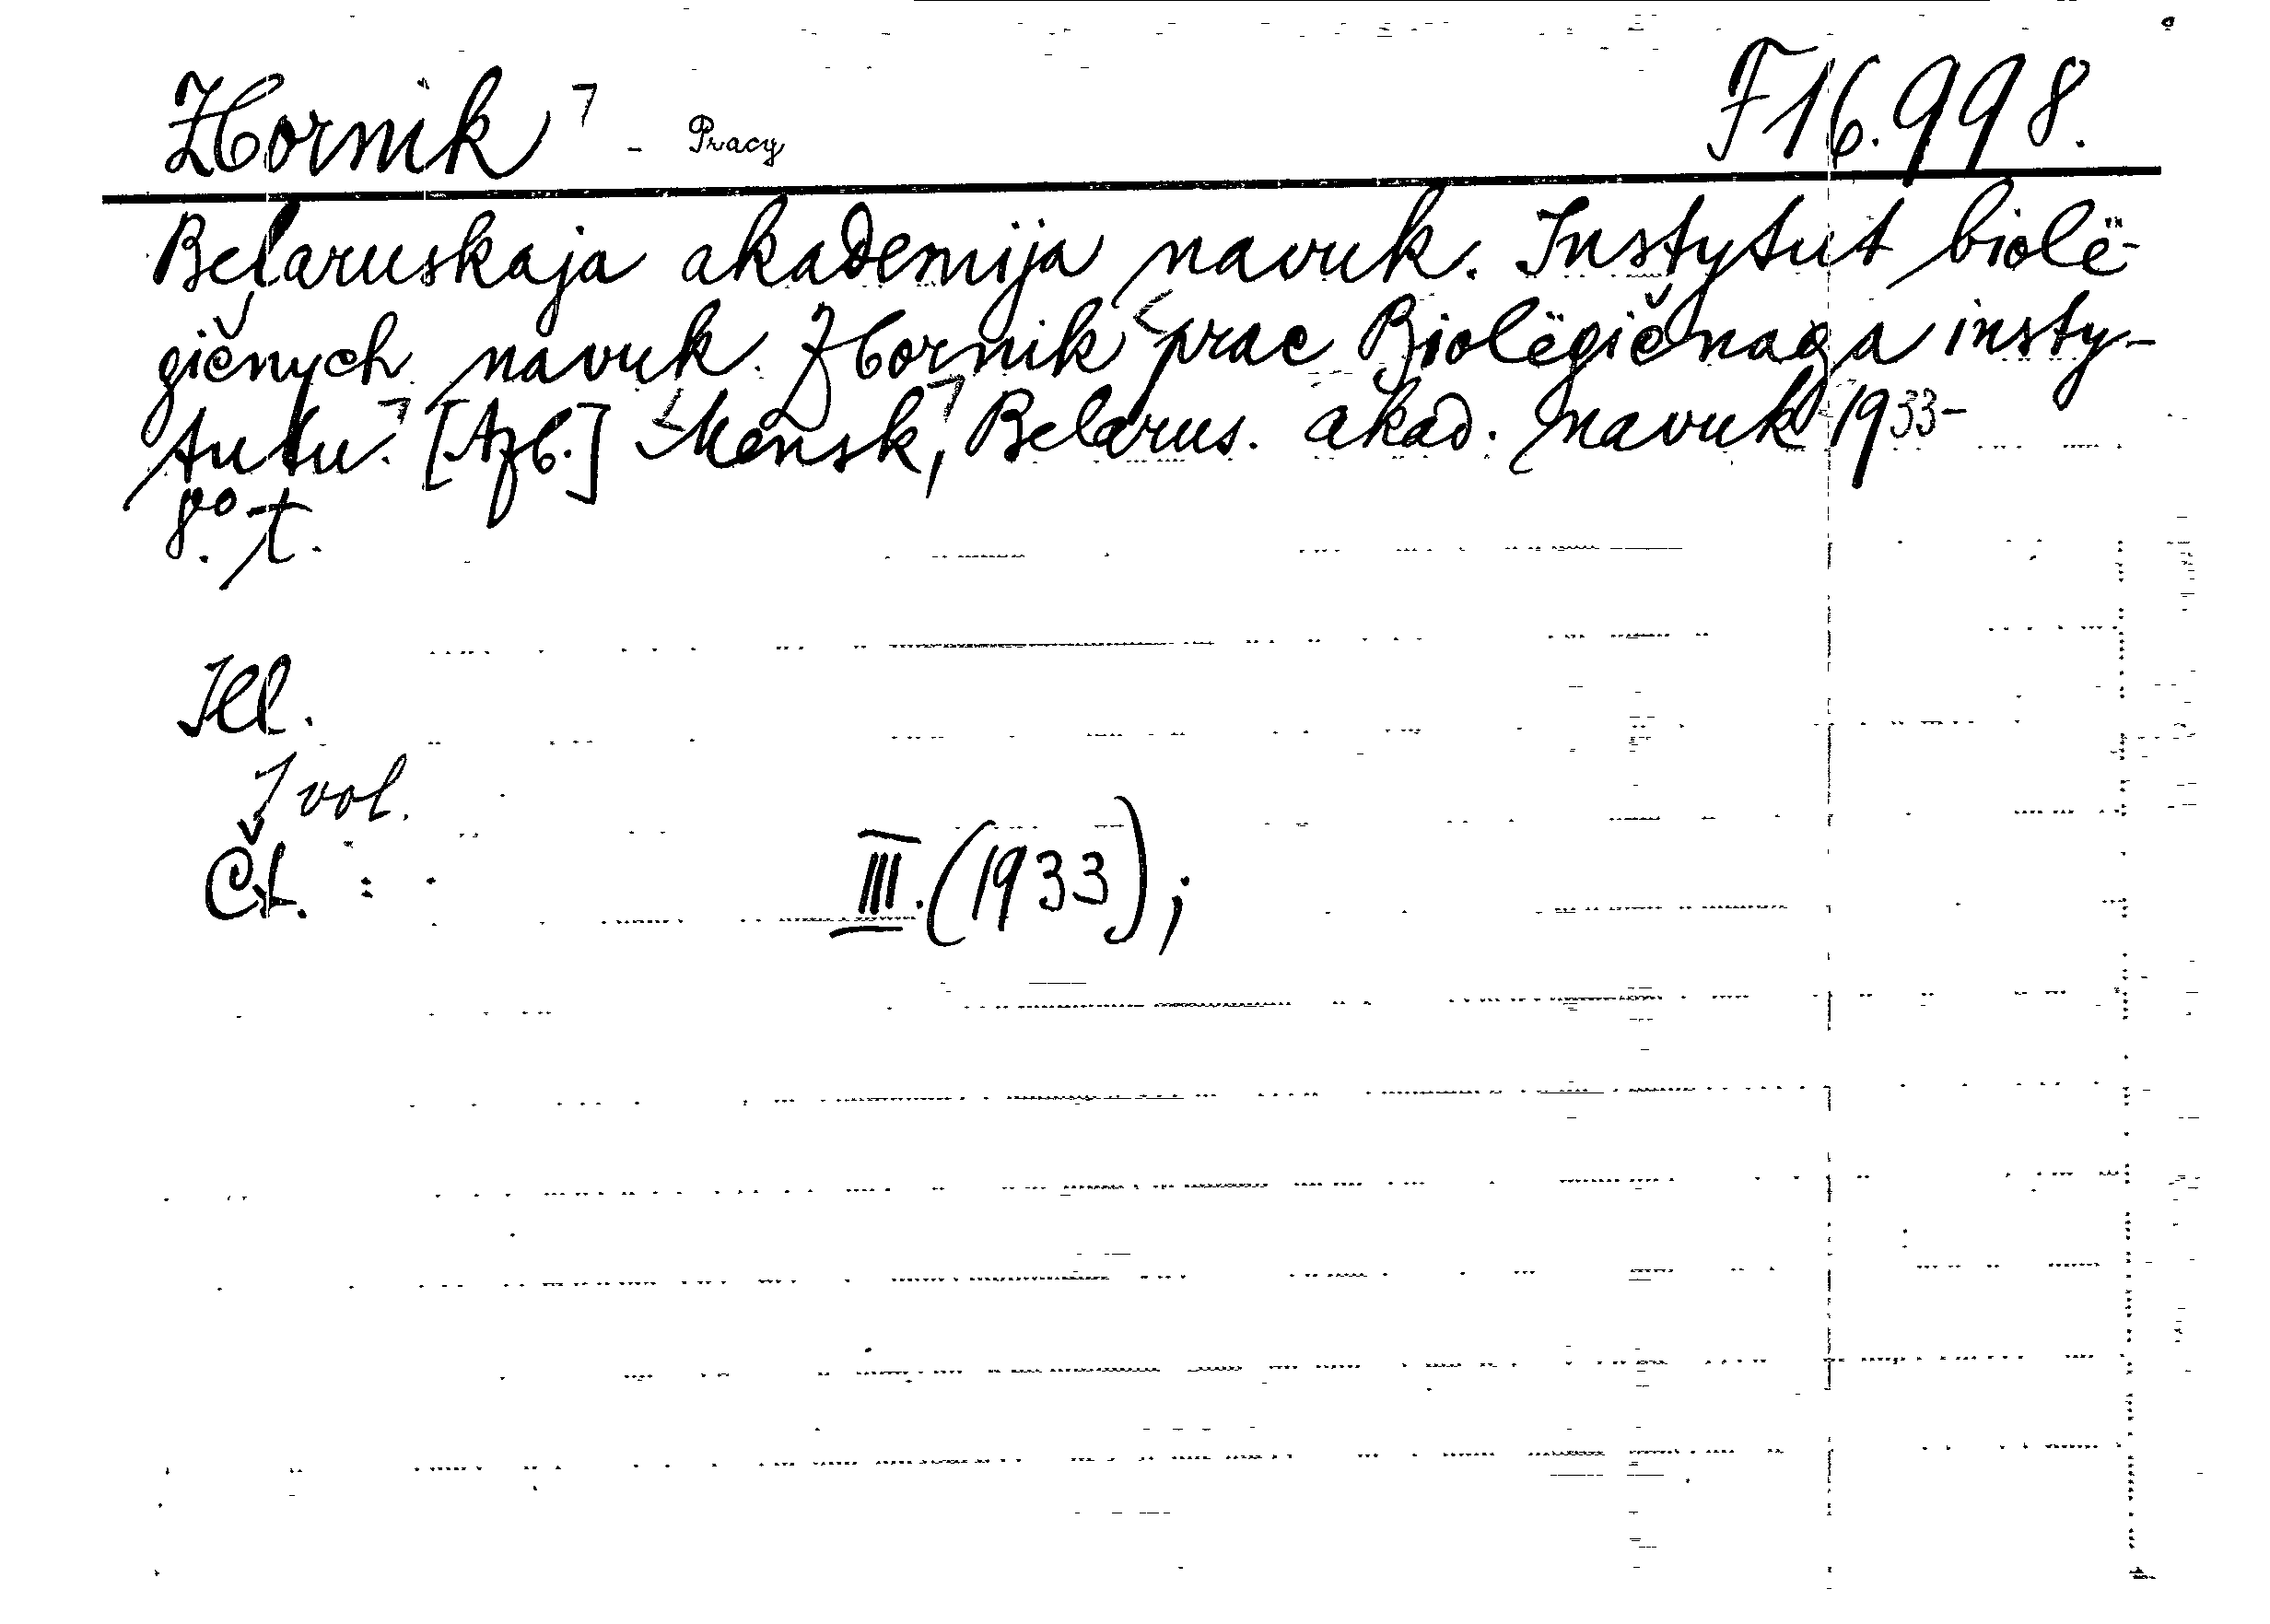 Zbornik⁊ - Pracy F16.998.
Belaruskaja akademija navuk. Instytut biolë-
gičnych navuk. Zbornik <prac Biolëgičnaga insty-
tutu.⁊ [Azb.] <Mensk⁊, Belarus. akad. navuk 1933-
8°. t.
Ill.
1 vol.
Č. :
III. (1933);